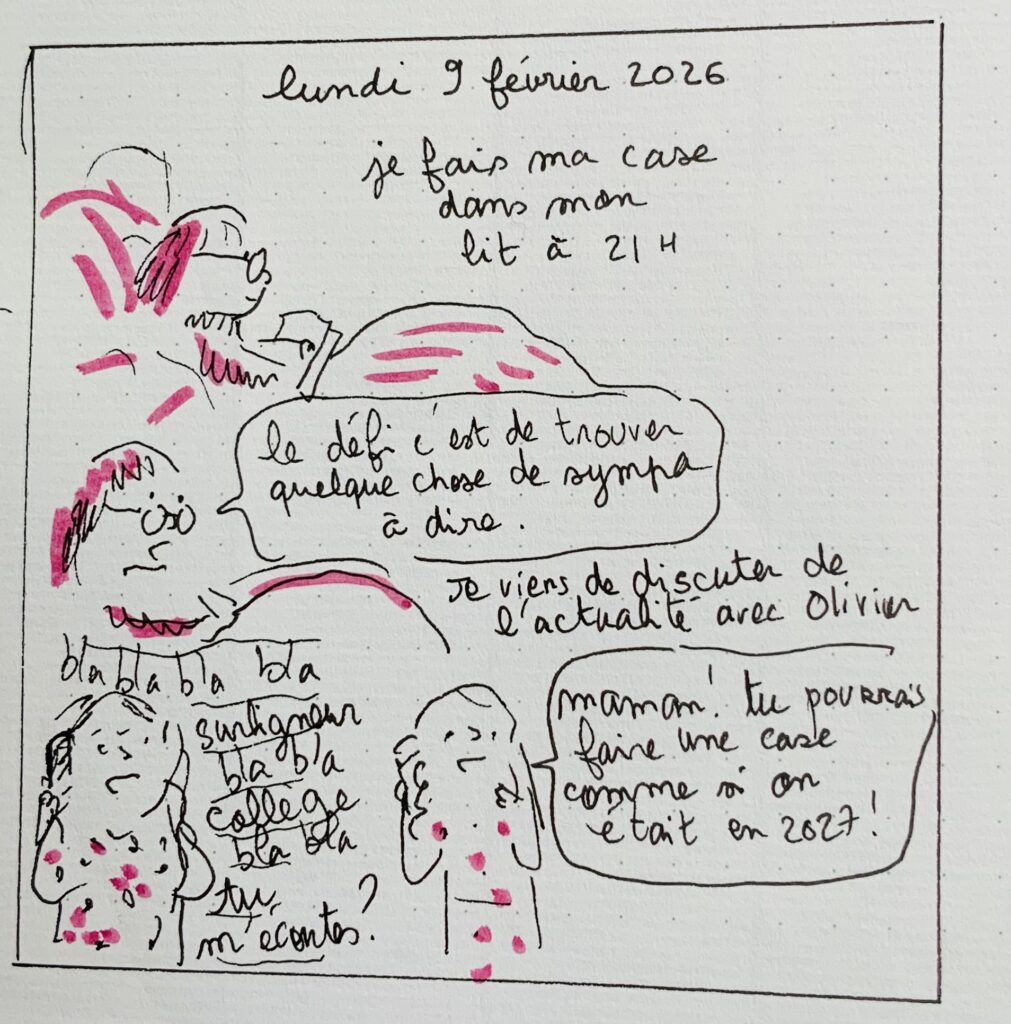 lundi 9 février 2026
je fais ma case
dans mon
lit à 21H
le défi c'est de trouver
quelque chose de sympa
à dire.
je viens de discuter de
l'actualité avec Olivier
bla bla bla bla
surligneur
bla bla
collège
bla bla
tu
m'écoutes?
maman! tu pourrais
faire une case
comme si on
était en 2027!